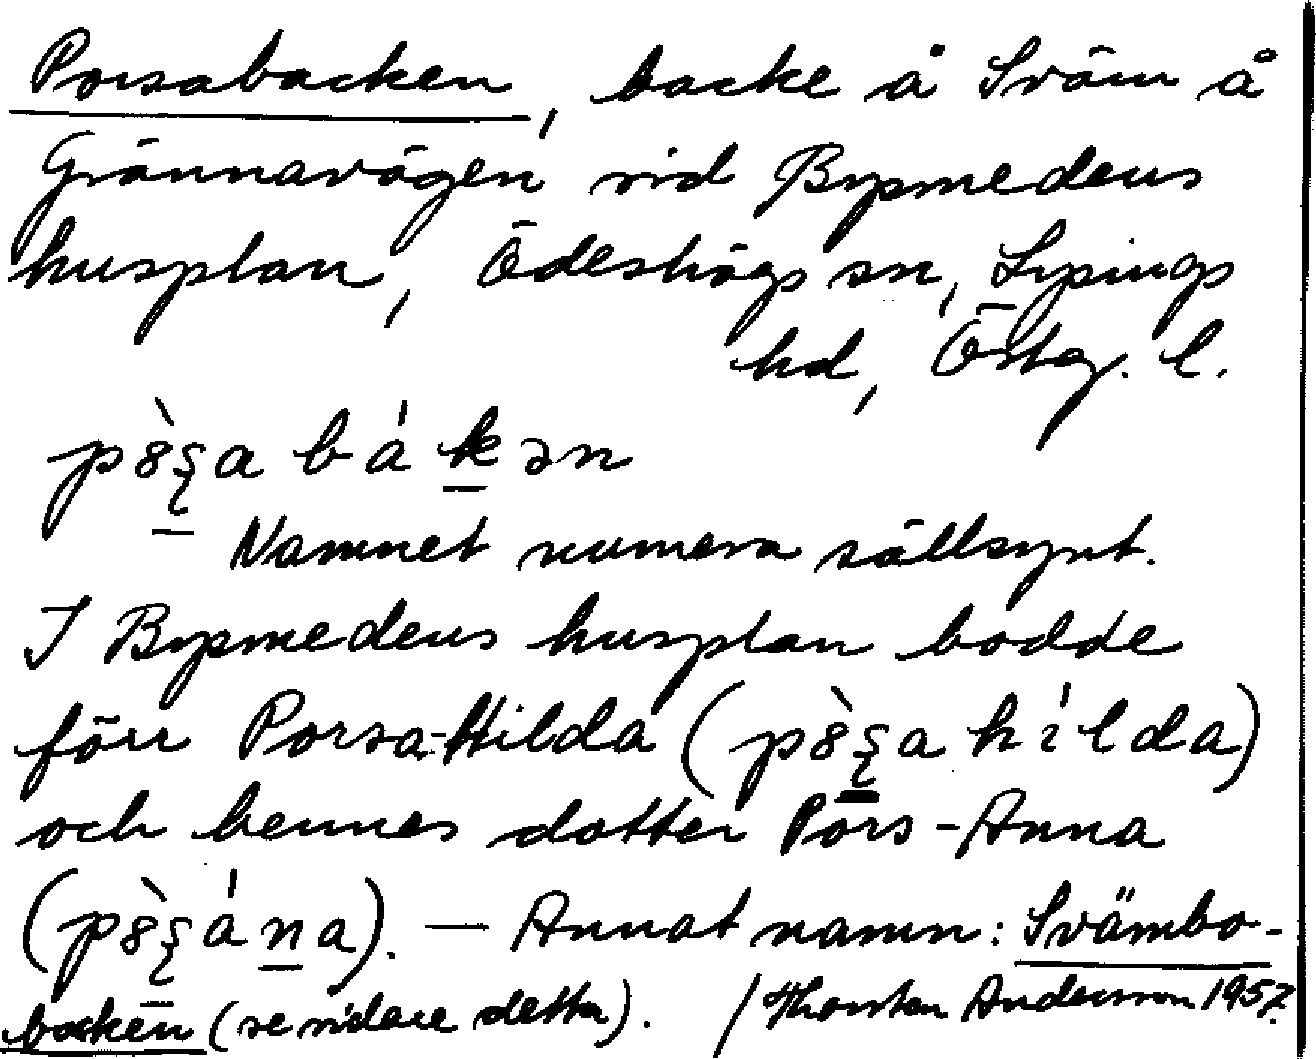 Porsabacken, backe å Sväm å
Grännavägen vid Bysmedens
husplan, Ödeshögs sn, Lysings
hd, Östg. l.
pòʂa bákən
Namnet numera sällsynt.
I Bysmedens husplan bodde
förr Porsa-Hilda (pòʂa hílda)
och hennes dotter Pors-Anna
(pòʂána). — Annat namn: Svämbo-
backen (se vidare detta). /Thorsten Andersson 1957.